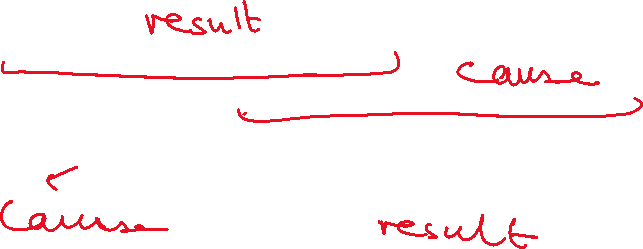 result
cause
cause
result